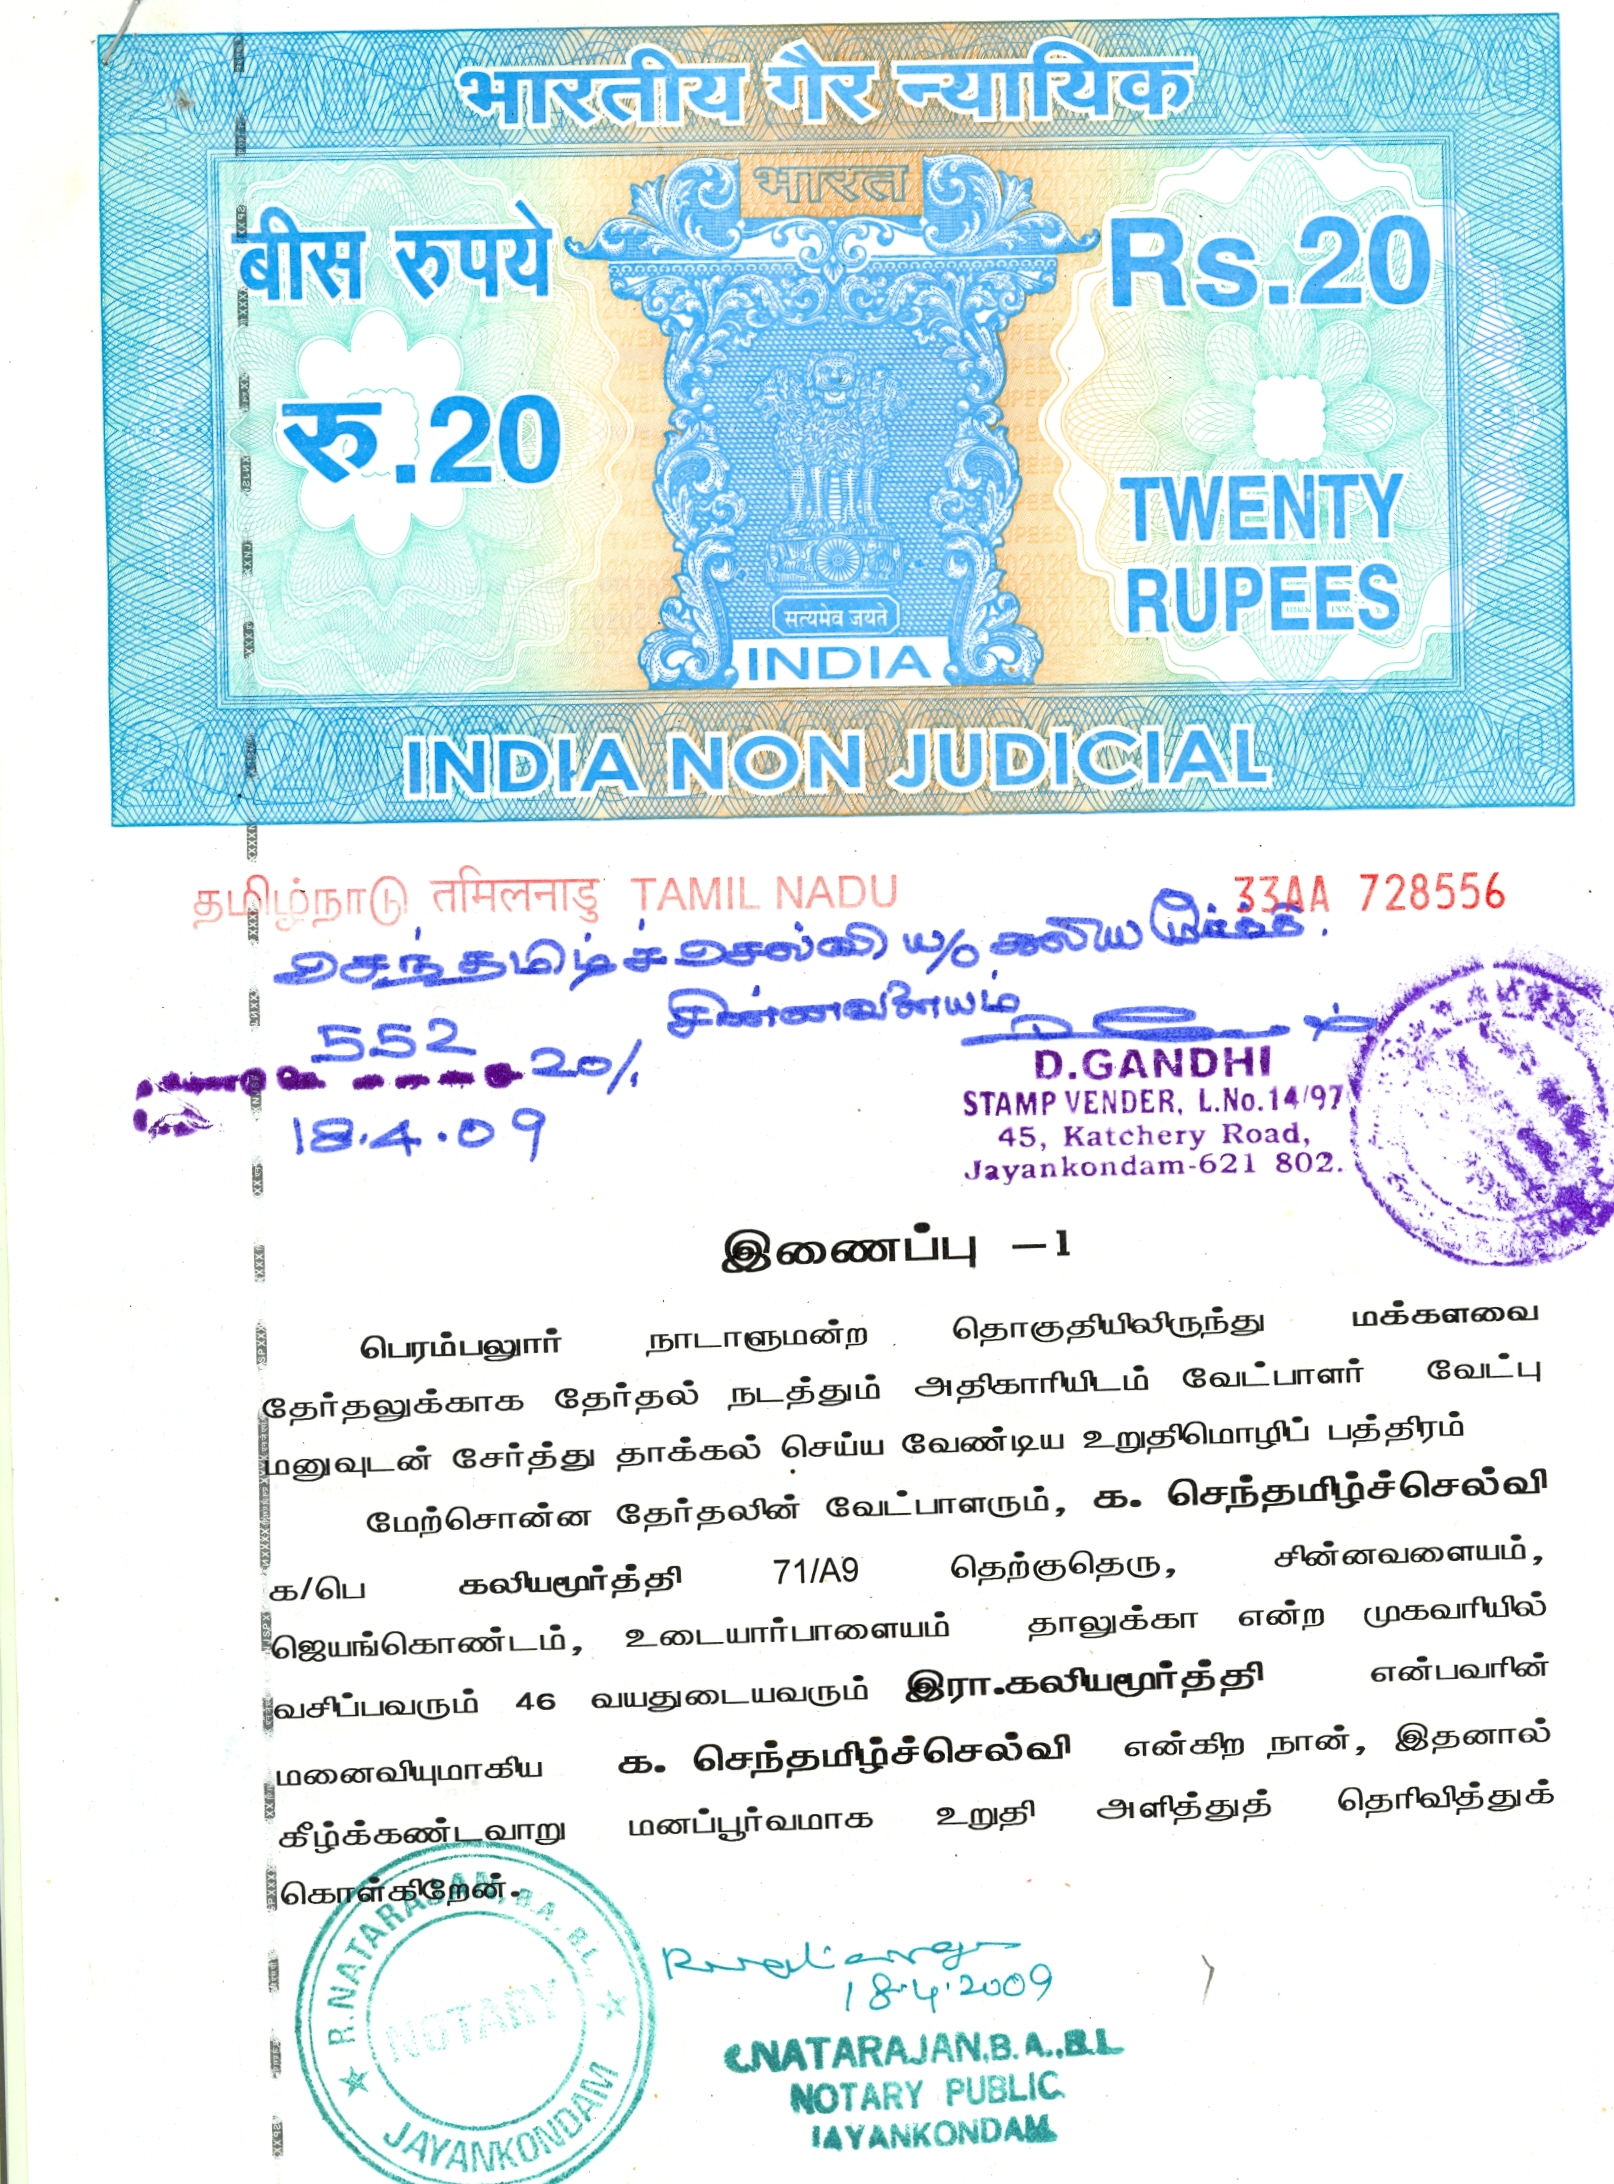 भारतीय गैर न्यायिक
भारत
बीस रुपये
Rs.20
रु.20
TWENTY
RUPEES
सत्यमेव जयते
INDIA
INDIA NON JUDICIAL
தமிழ்நாடு तमिलनाडु TAMIL NADU 33AA 728556
செந்தமிழ்ச்செல்வி W/o கலியமூர்த்தி.
சின்னவளையம்
552
20/.
18.4.09
D.GANDHI
STAMP VENDER, L.No.14/97
45, Katchery Road,
Jayankondam-621 802.
இணைப்பு –1
பெரம்பலூர் நாடாளுமன்ற தொகுதியிலிருந்து மக்களவை
தேர்தலுக்காக தேர்தல் நடத்தும் அதிகாரியிடம் வேட்பாளர் வேட்பு
மனுவுடன் சேர்த்து தாக்கல் செய்ய வேண்டிய உறுதிமொழிப் பத்திரம்
மேற்சொன்ன தேர்தலின் வேட்பாளரும், க. செந்தமிழ்ச்செல்வி
க/பெ கலியமூர்த்தி 71/A9 தெற்குதெரு, சின்னவளையம்,
ஜெயங்கொண்டம், உடையார்பாளையம் தாலுக்கா என்ற முகவரியில்
வசிப்பவரும் 46 வயதுடையவரும் இரா.கலியமூர்த்தி என்பவரின்
மனைவியுமாகிய க. செந்தமிழ்ச்செல்வி என்கிற நான், இதனால்
கீழ்க்கண்டவாறு மனப்பூர்வமாக உறுதி அளித்துத் தெரிவித்துக்
கொள்கிறேன்.
R.NATARASAN, B.A., B.L.,
NOTARY
JAYANKONDAM
18.4.2009
NATARAJAN,B.A.,B.L
NOTARY PUBLIC
JAYANKONDAM